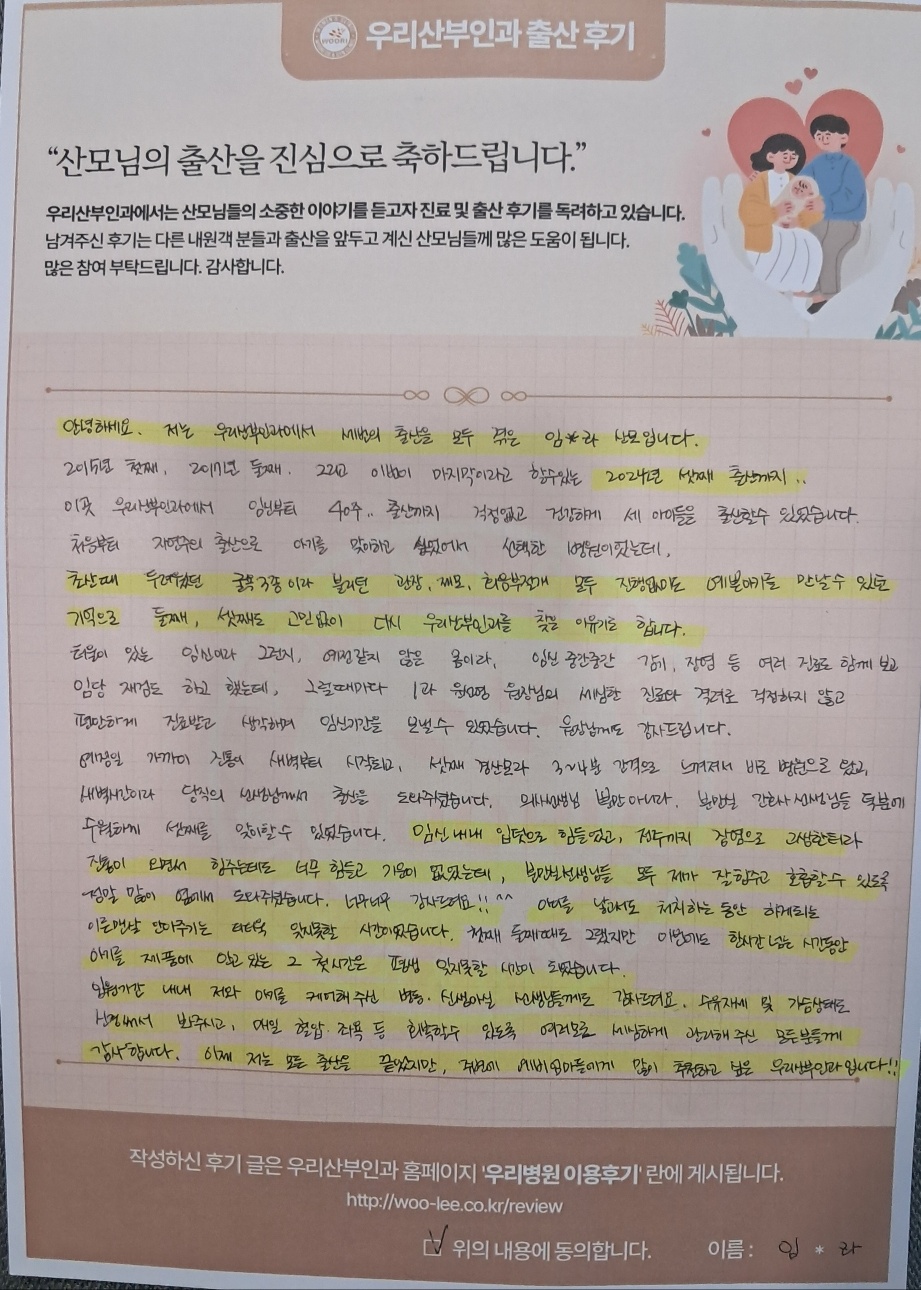 WOORI
우리산부인과 출산 후기
“산모님의 출산을 진심으로 축하드립니다.”
우리산부인과에서는 산모님들의 소중한 이야기를 듣고자 진료 및 출산 후기를 독려하고 있습니다.
남겨주신 후기는 다른 내원객 분들과 출산을 앞두고 계신 산모님들께 많은 도움이 됩니다.
많은 참여 부탁드립니다. 감사합니다.
안녕하세요. 저는 우리산부인과에서 세번의 출산을 모두 겪은 임*라 산모입니다.
2015년 첫째, 2017년 둘째. 그리고 이번이 마지막이라고 할수있는 2024년 셋째 출산까지..
이곳 우리산부인과에서 임신부터 40주.. 출산까지 걱정없고 건강하게 세 아이들을 출산할수 있었습니다.
처음부터 자연주의 출산으로 아기를 맞이하고 싶었어서 선택한 병원이었는데,
초산때 두려웠던 굴욕3종이라 불리던 관장, 제모, 회음부절개 모두 진행없이도 예쁜아기를 만날수 있었던
기억으로 둘째, 셋째도 고민없이 다시 우리산부인과를 찾은 이유기도 합니다.
터울이 있는 임신이라 그런지, 예전같지 않은 몸이라, 임신 중간중간 감기, 장염 등 여러 진료도 함께 보고
임당 재검도 하고 했는데, 그럴때마다 1과 원장님의 세심한 진료와 격려로 걱정하지 않고
편안하게 진료받고 생각하며 임신기간을 보낼수 있었습니다. 원장님께도 감사드립니다.
예정일 가까이 진통이 새벽부터 시작되고, 셋째 경산모라 3~4분 간격으로 느껴져서 바로 병원으로 왔고,
새벽시간이라 당직의 선생님께서 출산을 도와주셨습니다. 의사선생님 뿐만 아니라, 분만실 간호사 선생님들 덕분에
수월하게 셋째를 맞이할수 있었습니다. 임신내내 입덧으로 힘들었고, 전주까지 장염으로 고생한터라
진통이 오면서 힘주는데도 너무 힘들고 기운이 없었는데, 분만실선생님들 모두 제가 잘 힘주고 호흡할수 있도록
정말 많이 옆에서 도와주셨습니다. 너무너무 감사드려요!! ^^ 아이를 낳고서도 처치하는 동안 하게되는
이른맨살 안아주기는 더더욱 잊지못할 시간이었습니다. 첫째 둘째때도 그랬지만 이번에도 한시간 넘는 시간동안
아기를 제품에 안고 있는 그 첫시간은 평생 잊지못할 시간이 되었습니다.
입원기간 내내 저와 아기를 케어해 주신 병동. 신생아실 선생님들께도 감사드려요. 수유자세 및 가슴상태도
신경써서 봐주시고, 매일 혈압. 좌욕 등 회복할수 있도록 여러모로 세심하게 관리해 주신 모든분들께
감사합니다. 이제 저는 모든 출산을 끝냈지만, 주변에 예비엄마들에게 많이 추천하고 싶은 우리산부인과입니다!!
작성하신 후기 글은 우리산부인과 홈페이지 '우리병원 이용후기' 란에 게시됩니다.
http://woo-lee.co.kr/review
위의 내용에 동의합니다. 이름 : 임 * 라